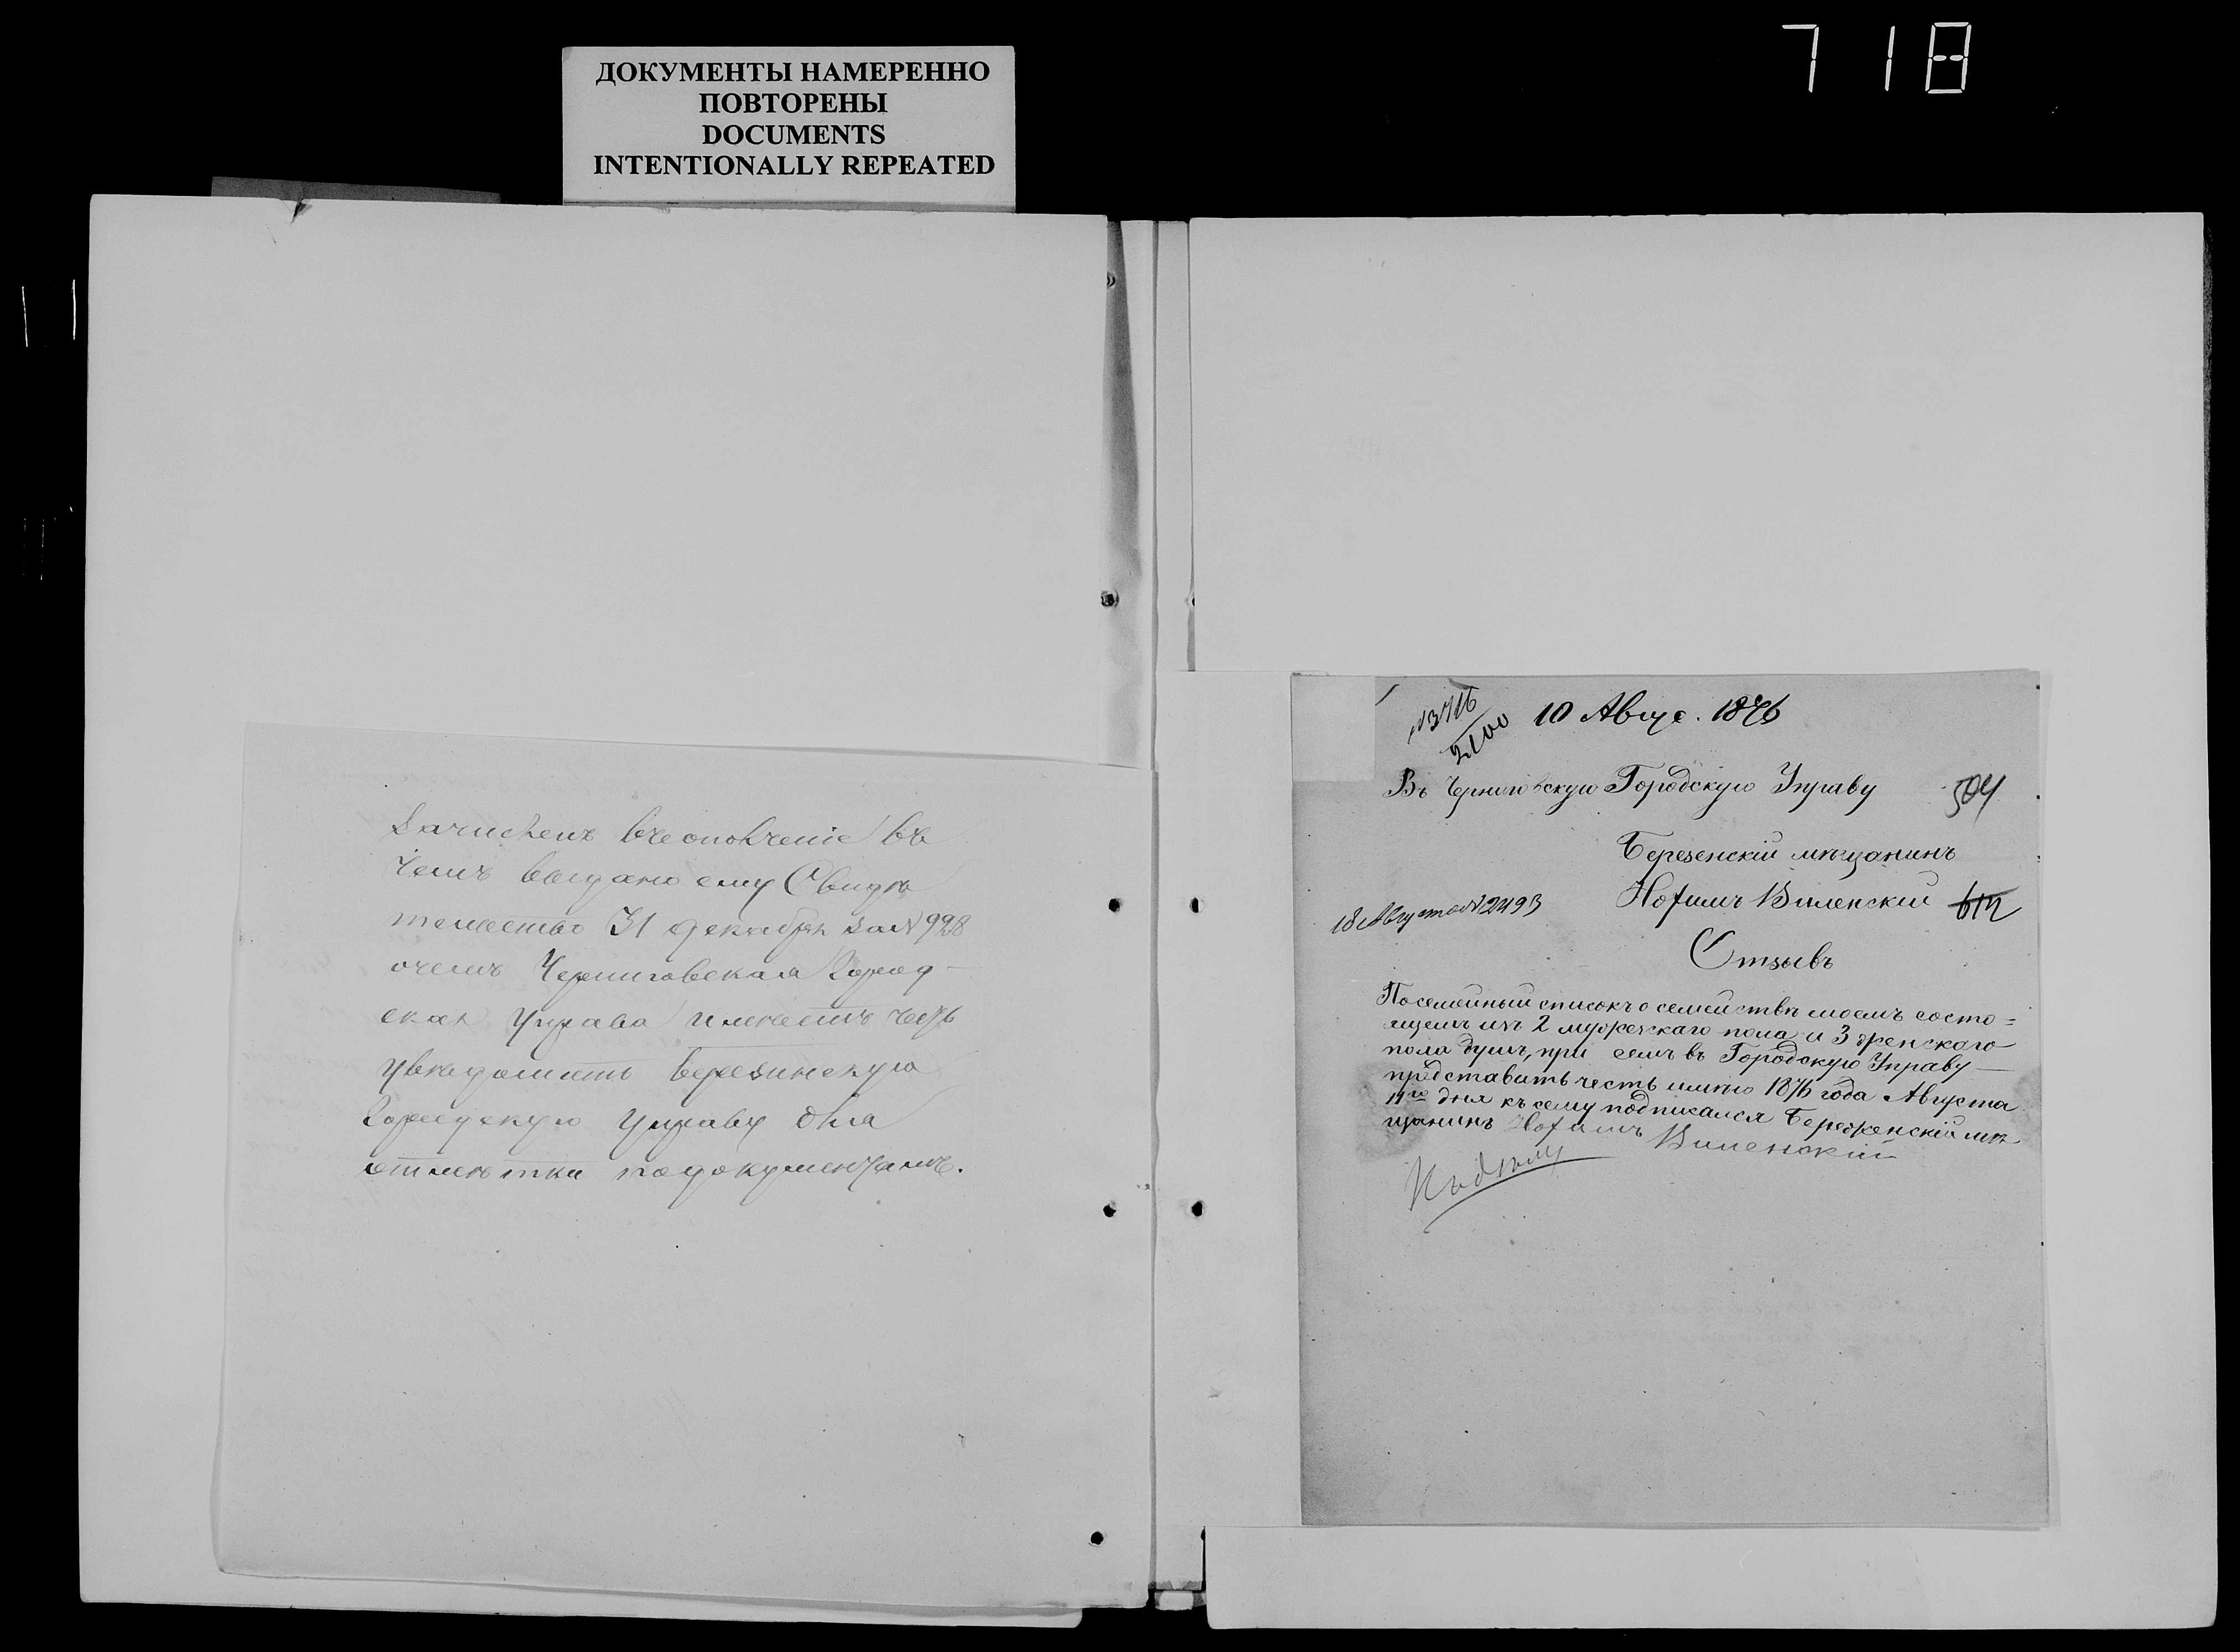 ДОКУМЕНТЫ НАМЕРЕННО
ПОВТОРЕНЫ
DOCUMENTS
INTENTIONALLY REPEATED
718
Зачисленъ въ ополченіе въ
чемъ выдано ему Свидѣ
тельство 31 декабря за № 998
о чемъ Черниговская Город-
ская Управа имѣетъ честь
увѣдомить Березинскую
Городскую Управу для
отмѣтки по документамъ.
10 Авгус. 1876
2100
Въ Черниговскую Городскую Управу
504
Березенскій мѣщанинъ
Нохимъ Виленскій
18 Августа № 2493
Отзывъ
Посемейный списокъ о семействѣ моемъ состо=
ящемъ изъ 2 мужескаго пола и 3 женскаго
пола душъ, при семъ въ Городскую Управу
представить честь имѣю 1876 года Августа
дня къ сему подписался Березенскій мѣ-
щанинъ Нохимъ Виленскій
Къ дѣлу